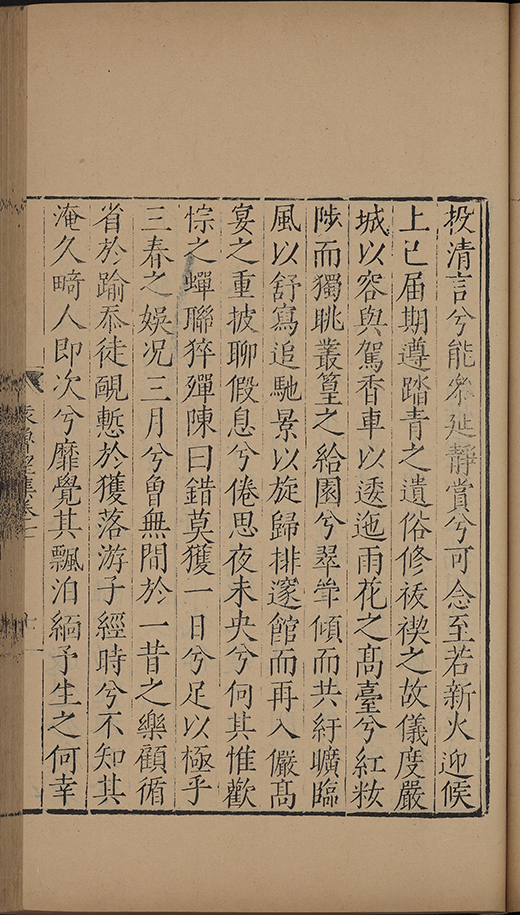 投清言兮能參延靜賞兮可念至若新火迎候
上巳届期遵踏青之遺俗修祓禊之故儀度嚴
城以容與駕香車以逶迤雨花之髙臺兮紅籹
陟而獨眺叢篁之給園兮翠㡓傾而共紆曠臨
風以舒寫追馳景以旋歸排邃館而再入儼髙
宴之重披聊假息兮倦思夜未央兮何其惟歡
悰之蟬聯猝殫陳曰錯莫獲一日兮足以極乎
三春之娛况三月兮曾無間於一昔之樂顧循
省於踰忝徒靦慙於獲落游子經時兮不知其
淹久畸人即次兮靡覺其飄泊緬予生之何幸
集卷